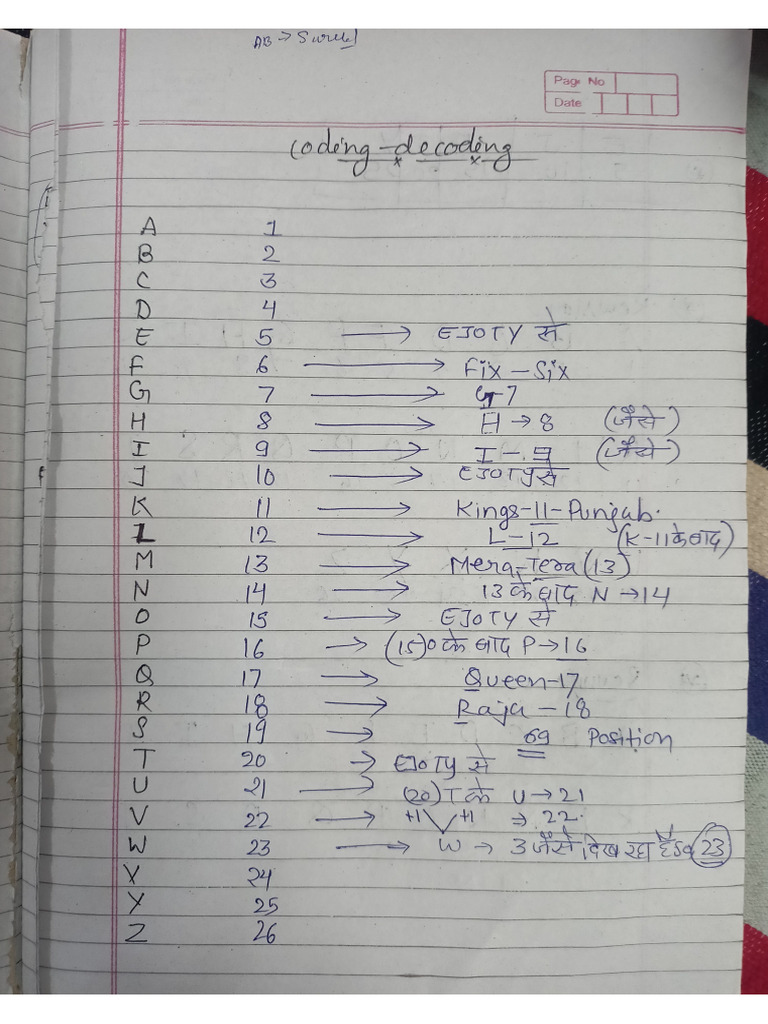 AB →
Page No
Date
Coding-decoding
A 1
B 2
C 3
D 4
E 5 → EJOTY से
F 6 → Fix - Six
G 7 → G-7
H 8 → H → 8 (जैसे)
I 9 → I - 9 (जैसे)
J 10 → EJOTY से
K 11 → Kings-11-Punjab.
L 12 → L-12 (K-11 के बाद)
M 13 → Mera-Tera (13)
N 14 → 13 के बाद N → 14
O 15 → EJOTY से
P 16 → (15) O के बाद P → 16
Q 17 → Queen-17
R 18 → Raja - 18
S 19 → 69 Position
T 20 → EJOTY से
U 21 → (20) T के U → 21
V 22 → +1 V +1 ⇒ 22.
W 23 → W → 3 जैसे दिख रहा है 23
X 24
Y 25
Z 26